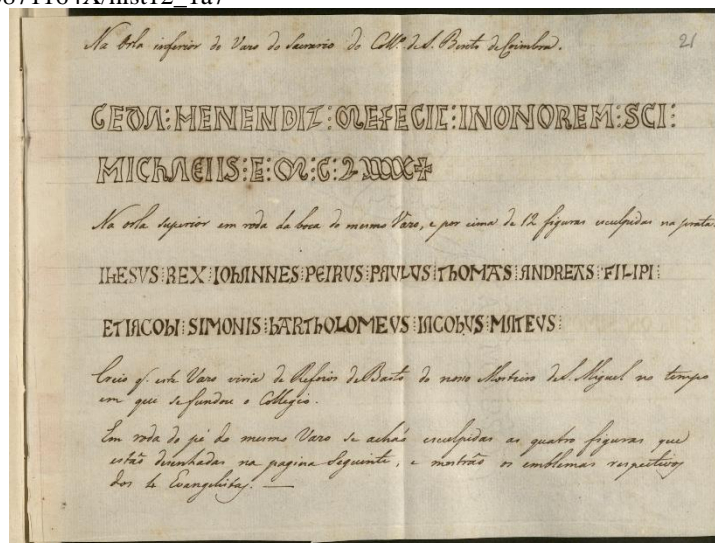 21
Na Orla inferior do Vaso do Sacrario do Coll.º de S. Bento de Coimbra.
GEDA:MENENDIZ:MEFECIT:INONOREM:SCI:
MICHAELIS:E:M:C:
Na orla superior em roda da boca do mesmo Vaso, e por cima de 12 figuras esculpidas na prata.
IHESVS:REX:IOhANNES:PEIRUS:PAULVS:ThOMAS:ANDREAS:FILIPI:
ETIACObI:SIMONIS:bARThOLOMEVS:IACObUS:MATEVS:
Creio q. este Vaso viria de Refoios de Basto do nosso Mosteiro de S. Miguel no tempo
em que se fundou o Collegio.
Em roda do pé do mesmo Vaso se achão esculpidas as quatro figuras que
estão desenhadas na pagina seguinte, e mostrão os emblemas respectivos
dos 4 Evangelistas. —